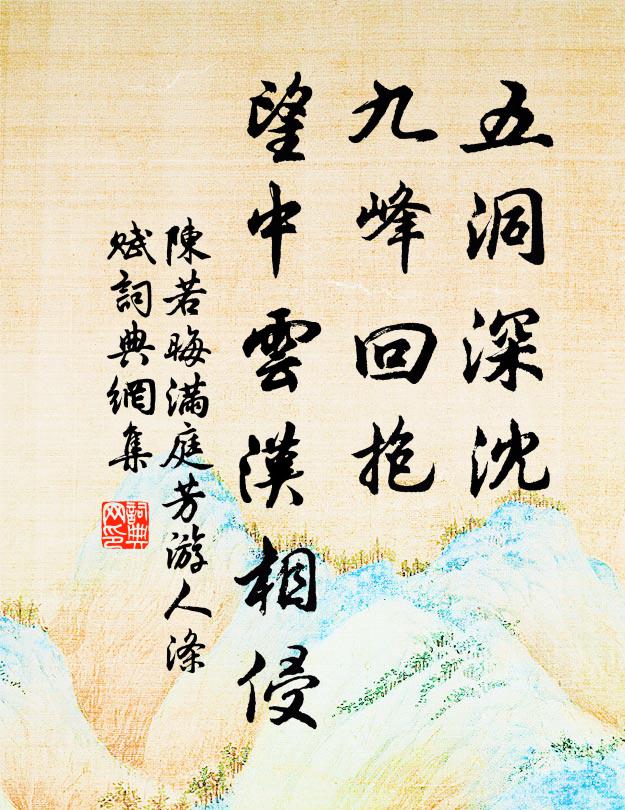 五洞深沈
九峰回抱
望中雲漢相侵
陳若晦滿庭芳游人滌
賦詞典網集
詞典網印